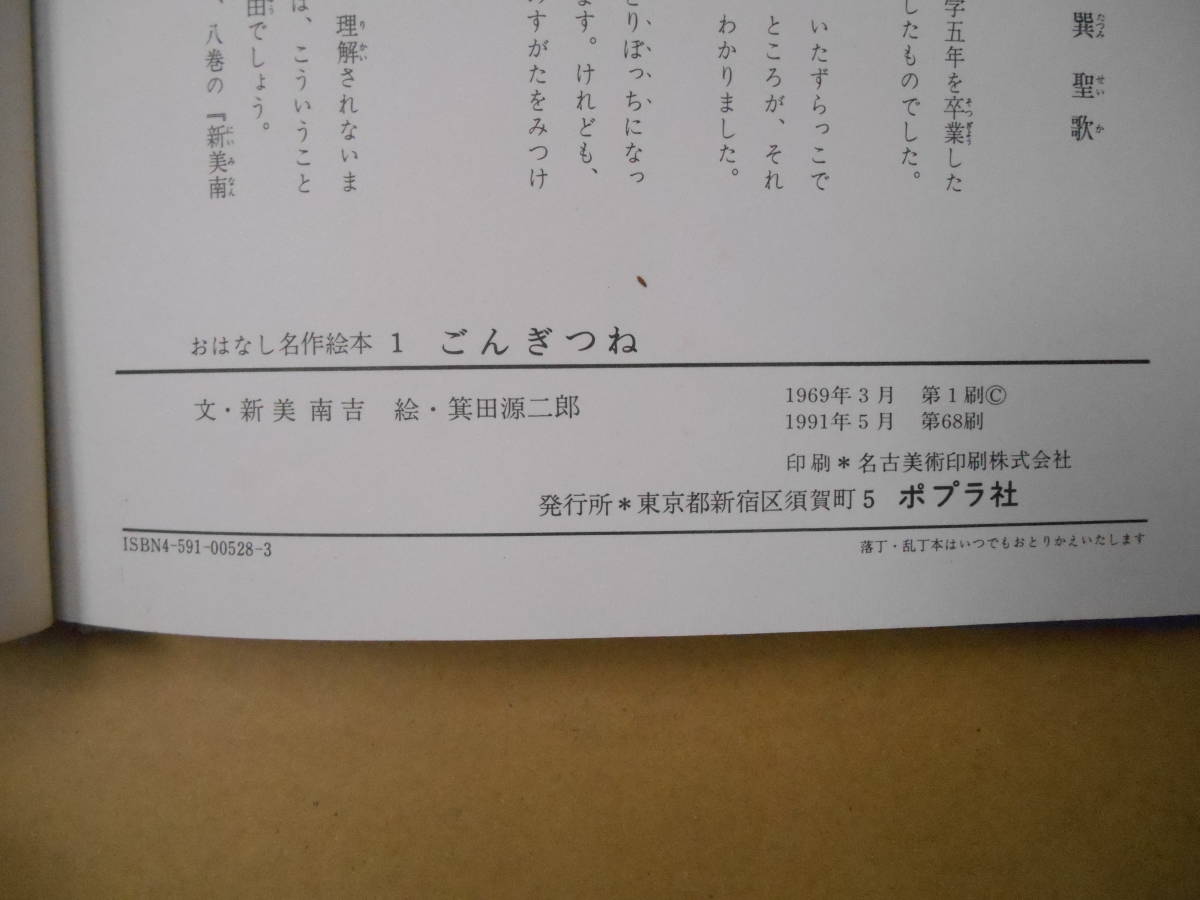 巽聖歌
たつみ せい か
学五年を卒業した
そつぎょう
したものでした。
いたずらっこで
ところが、それ
わかりました。
とりぼっちになっ
ます。けれども、
すがたをみつけ
理解されないま
り かい
は、こういうこと
田でしょう。
、八巻の『新美南
にい み なん
おはなし名作絵本 1 ごんぎつね
文・新美南吉 絵・箕田源二郎
1969年3月 第1刷©
1991年5月 第68刷
印刷*名古美術印刷株式会社
発行所*東京都新宿区須賀町5 ポプラ社
ISBN4-591-00528-3
落丁・乱丁本はいつでもおとりかえいたします